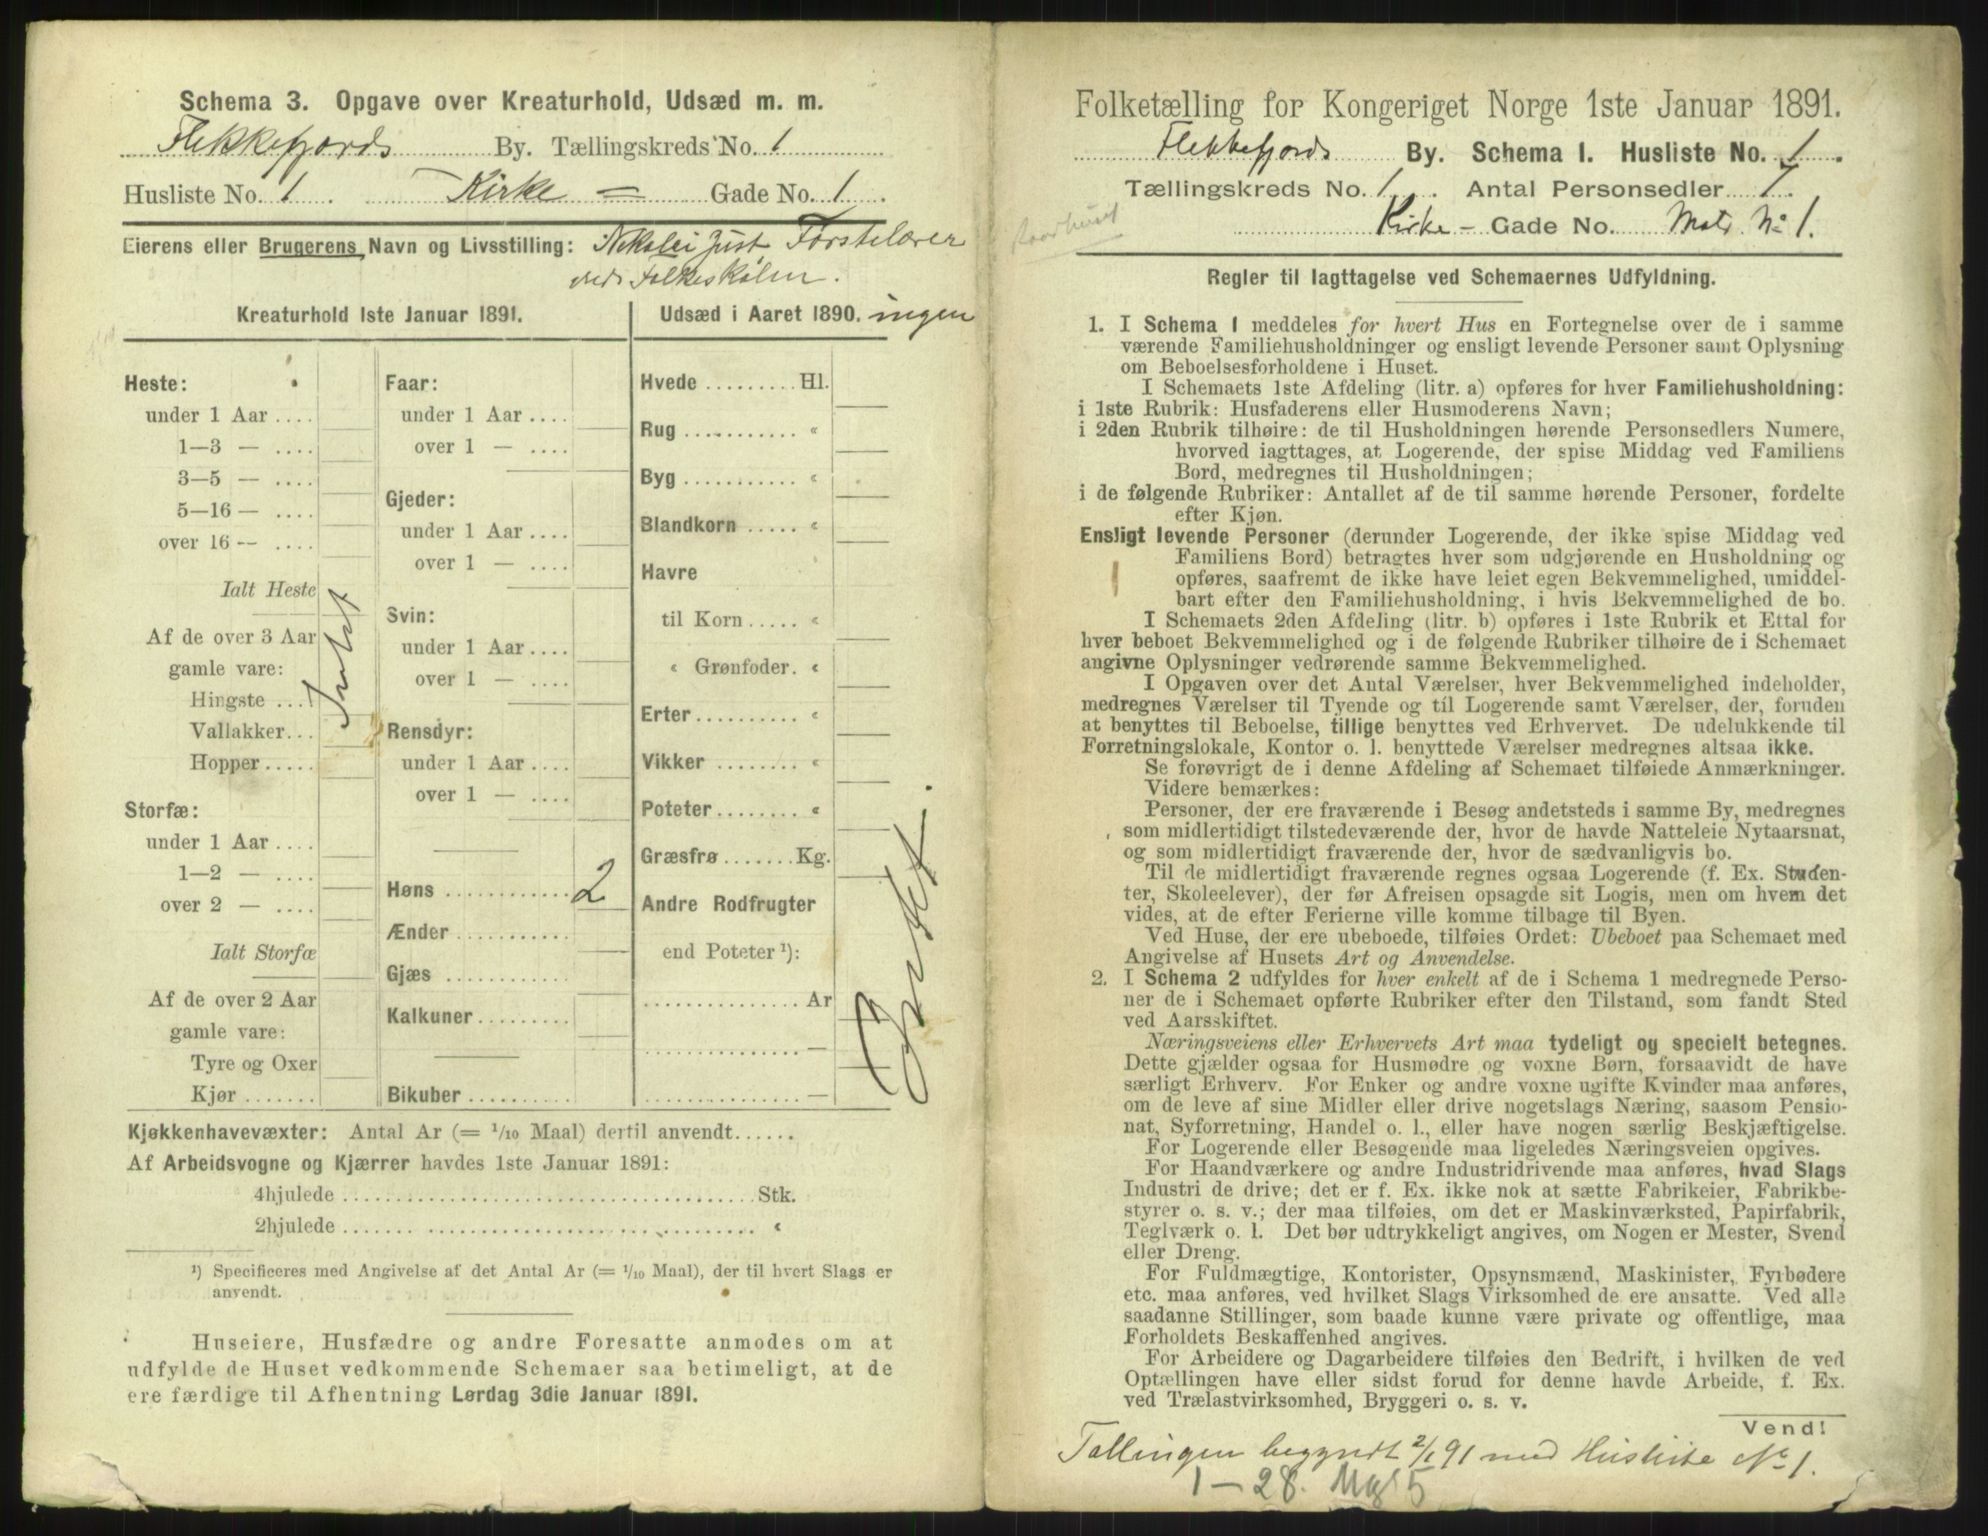 Schema 3. Opgave over Kreaturhold, Udsæd m. m.
Flekkefjords By. Tællingskreds No. 1
Husliste No. 1 Kirke = Gade No. 1.
Eierens eller Brugerens Navn og Livsstilling: Nikolei Just, Førstelærer
ved Folkeskolen.
Kreaturhold 1ste Januar 1891.
Heste:
under 1 Aar ....
1—3 — ....
3—5 — ....
5—16 — ....
over 16 — ....
Ialt Heste
Af de over 3 Aar
gamle vare:
Hingste ....
Vallakker...
Hopper .....
Storfæ:
under 1 Aar ....
1—2 — ....
over 2 — ....
Ialt Storfæ
Af de over 2 Aar
gamle vare:
Tyre og Oxer
Kjør .......
Intet
Faar:
under 1 Aar ....
over 1 — ....
Gjeder:
under 1 Aar ....
over 1 — ....
Svin:
under 1 Aar ....
over 1 — ....
Rensdyr:
under 1 Aar ....
over 1 — ....
Høns ........... 2
Ænder ...........
Gjæs ...........
Kalkuner .........
Bikuber ..........
Udsæd i Aaret 1890. ingen
Hvede ......... Hl.
Rug ........... “
Byg ........... “
Blandkorn ..... “
Havre
til Korn ..... “
“ Grønfoder. “
Erter .......... “
Vikker ........ “
Poteter ........ “
Græsfrø ....... Kg.
Andre Rodfrugter
end Poteter ¹):
............... Ar
............... —
............... —
Intet.
Kjøkkenhavevæxter: Antal Ar (= 1/10 Maal) dertil anvendt......
Af Arbeidsvogne og Kjærrer havdes 1ste Januar 1891:
4hjulede ........................................ Stk.
2hjulede ........................................ “
¹) Specificeres med Angivelse af det Antal Ar (= 1/10 Maal), der til hvert Slags er
anvendt.
Huseiere, Husfædre og andre Foresatte anmodes om at
udfylde de Huset vedkommende Schemaer saa betimeligt, at de
ere færdige til Afhentning Lørdag 3die Januar 1891.
Folketælling for Kongeriget Norge 1ste Januar 1891.
Flekkefjords By. Schema 1. Husliste No. 1.
Tællingskreds No. 1. Antal Personsedler 7.
Kirke – Gade No. Matr. No 1.
Regler til Iagttagelse ved Schemaernes Udfyldning.
1. I Schema 1 meddeles for hvert Hus en Fortegnelse over de i samme
værende Familiehusholdninger og ensligt levende Personer samt Oplysning
om Beboelsesforholdene i Huset.
I Schemaets 1ste Afdeling (litr. a) opføres for hver Familiehusholdning:
i 1ste Rubrik: Husfaderens eller Husmoderens Navn;
i 2den Rubrik tilhøire: de til Husholdningen hørende Personsedlers Numere,
hvorved iagttages, at Logerende, der spise Middag ved Familiens
Bord, medregnes til Husholdningen;
i de følgende Rubriker: Antallet af de til samme hørende Personer, fordelte
efter Kjøn.
Ensligt levende Personer (derunder Logerende, der ikke spise Middag ved
Familiens Bord) betragtes hver som udgjørende en Husholdning og
opføres, saafremt de ikke have leiet egen Bekvemmelighed, umiddel-
bart efter den Familiehusholdning, i hvis Bekvemmelighed de bo.
I Schemaets 2den Afdeling (litr. b) opføres i 1ste Rubrik et Ettal for
hver beboet Bekvemmelighed og i de følgende Rubriker tilhøire de i Schemaet
angivne Oplysninger vedrørende samme Bekvemmelighed.
I Opgaven over det Antal Værelser, hver Bekvemmelighed indeholder,
medregnes Værelser til Tyende og til Logerende samt Værelser, der, foruden
at benyttes til Beboelse, tillige benyttes ved Erhvervet. De udelukkende til
Forretningslokale, Kontor o. l. benyttede Værelser medregnes altsaa ikke.
Se forøvrigt de i denne Afdeling af Schemaet tilføiede Anmærkninger.
Videre bemærkes:
Personer, der ere fraværende i Besøg andetsteds i samme By, medregnes
som midlertidigt tilstedeværende der, hvor de havde Natteleie Nytaarsnat,
og som midlertidigt fraværende der, hvor de sædvanligvis bo.
Til de midlertidigt fraværende regnes ogsaa Logerende (f. Ex. Studen-
ter, Skoleelever), der før Afreisen opsagde sit Logis, men om hvem det
vides, at de efter Ferierne ville komme tilbage til Byen.
Ved Huse, der ere ubeboede, tilføies Ordet: Ubeboet paa Schemaet med
Angivelse af Husets Art og Anvendelse.
2. I Schema 2 udfyldes for hver enkelt af de i Schema 1 medregnede Perso-
ner de i Schemaet opførte Rubriker efter den Tilstand, som fandt Sted
ved Aarsskiftet.
Næringsveiens eller Erhvervets Art maa tydeligt og specielt betegnes.
Dette gjælder ogsaa for Husmødre og voxne Børn, forsaavidt de have
særligt Erhverv. For Enker og andre voxne ugifte Kvinder maa anføres,
om de leve af sine Midler eller drive nogetslags Næring, saasom Pensio-
nat, Syforretning, Handel o. l., eller have nogen særlig Beskjæftigelse.
For Logerende eller Besøgende maa ligeledes Næringsveien opgives.
For Haandværkere og andre Industridrivende maa anføres, hvad Slags
Industri de drive; det er f. Ex. ikke nok at sætte Fabrikeier, Fabrikbe-
styrer o. s. v.; der maa tilføies, om det er Maskinværksted, Papirfabrik,
Teglværk o. l. Det bør udtrykkeligt angives, om Nogen er Mester, Svend
eller Dreng.
For Fuldmægtige, Kontorister, Opsynsmænd, Maskinister, Fyrbødere
etc. maa anføres, ved hvilket Slags Virksomhed de ere ansatte. Ved alle
saadanne Stillinger, som baade kunne være private og offentlige, maa
Forholdets Beskaffenhed angives.
For Arbeidere og Dagarbeidere tilføies den Bedrift, i hvilken de ved
Optællingen have eller sidst forud for denne havde Arbeide, f. Ex.
ved Trælastvirksomhed, Bryggeri o. s. v.
Vend!
Tællingen begyndt 2/1 91 med Husliste No 1.
1 – 28.